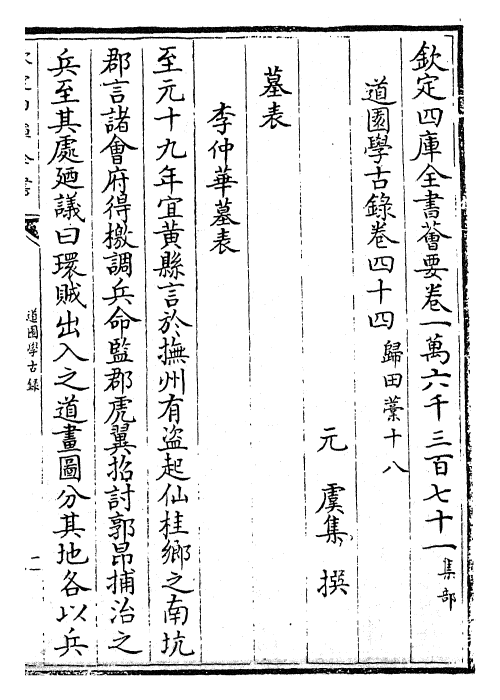 欽定四庫全書薈要卷一萬六千三百七十一集部
道園學古錄卷四十四 歸田藳十八
元 虞集 撰
墓表
李仲華墓表
至元十九年宜黃縣言於撫州有盜起仙桂鄉之南坑
郡言諸會府得檄調兵命監郡虎翼招討郭昂捕治之
兵至其處廼議曰環賊出入之道畫圖分其地各以兵
道園學古錄